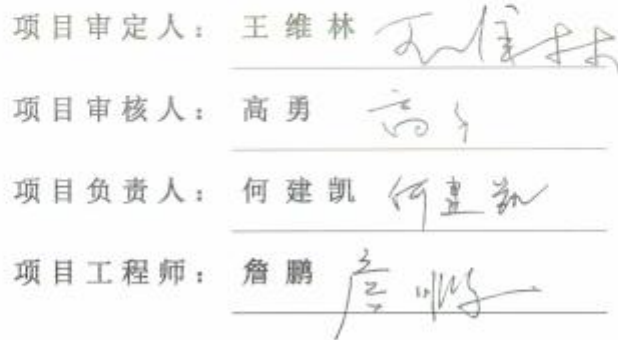 项目审定人：王维林 王维林
项目审核人：高勇 高勇
项目负责人：何建凯 何建凯
项目工程师：詹鹏 詹鹏